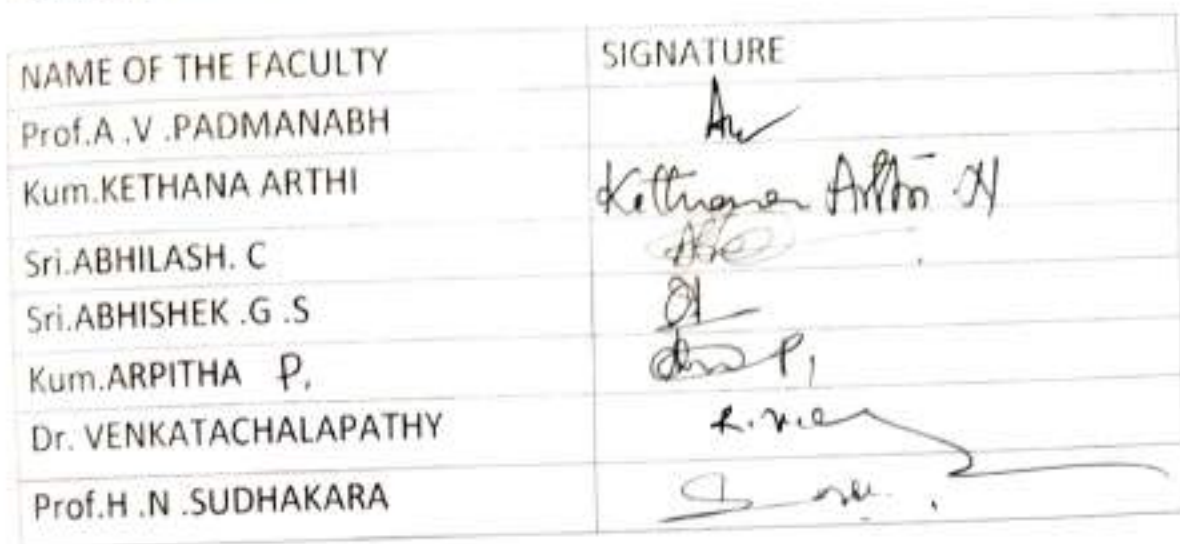 NAME OF THE FACULTY SIGNATURE
Prof.A .V .PADMANABH
Kum.KETHANA ARTHI Kethana Arthi N
Sri.ABHILASH. C
Sri.ABHISHEK .G .S
Kum.ARPITHA P. P.
Dr. VENKATACHALAPATHY
Prof.H .N .SUDHAKARA